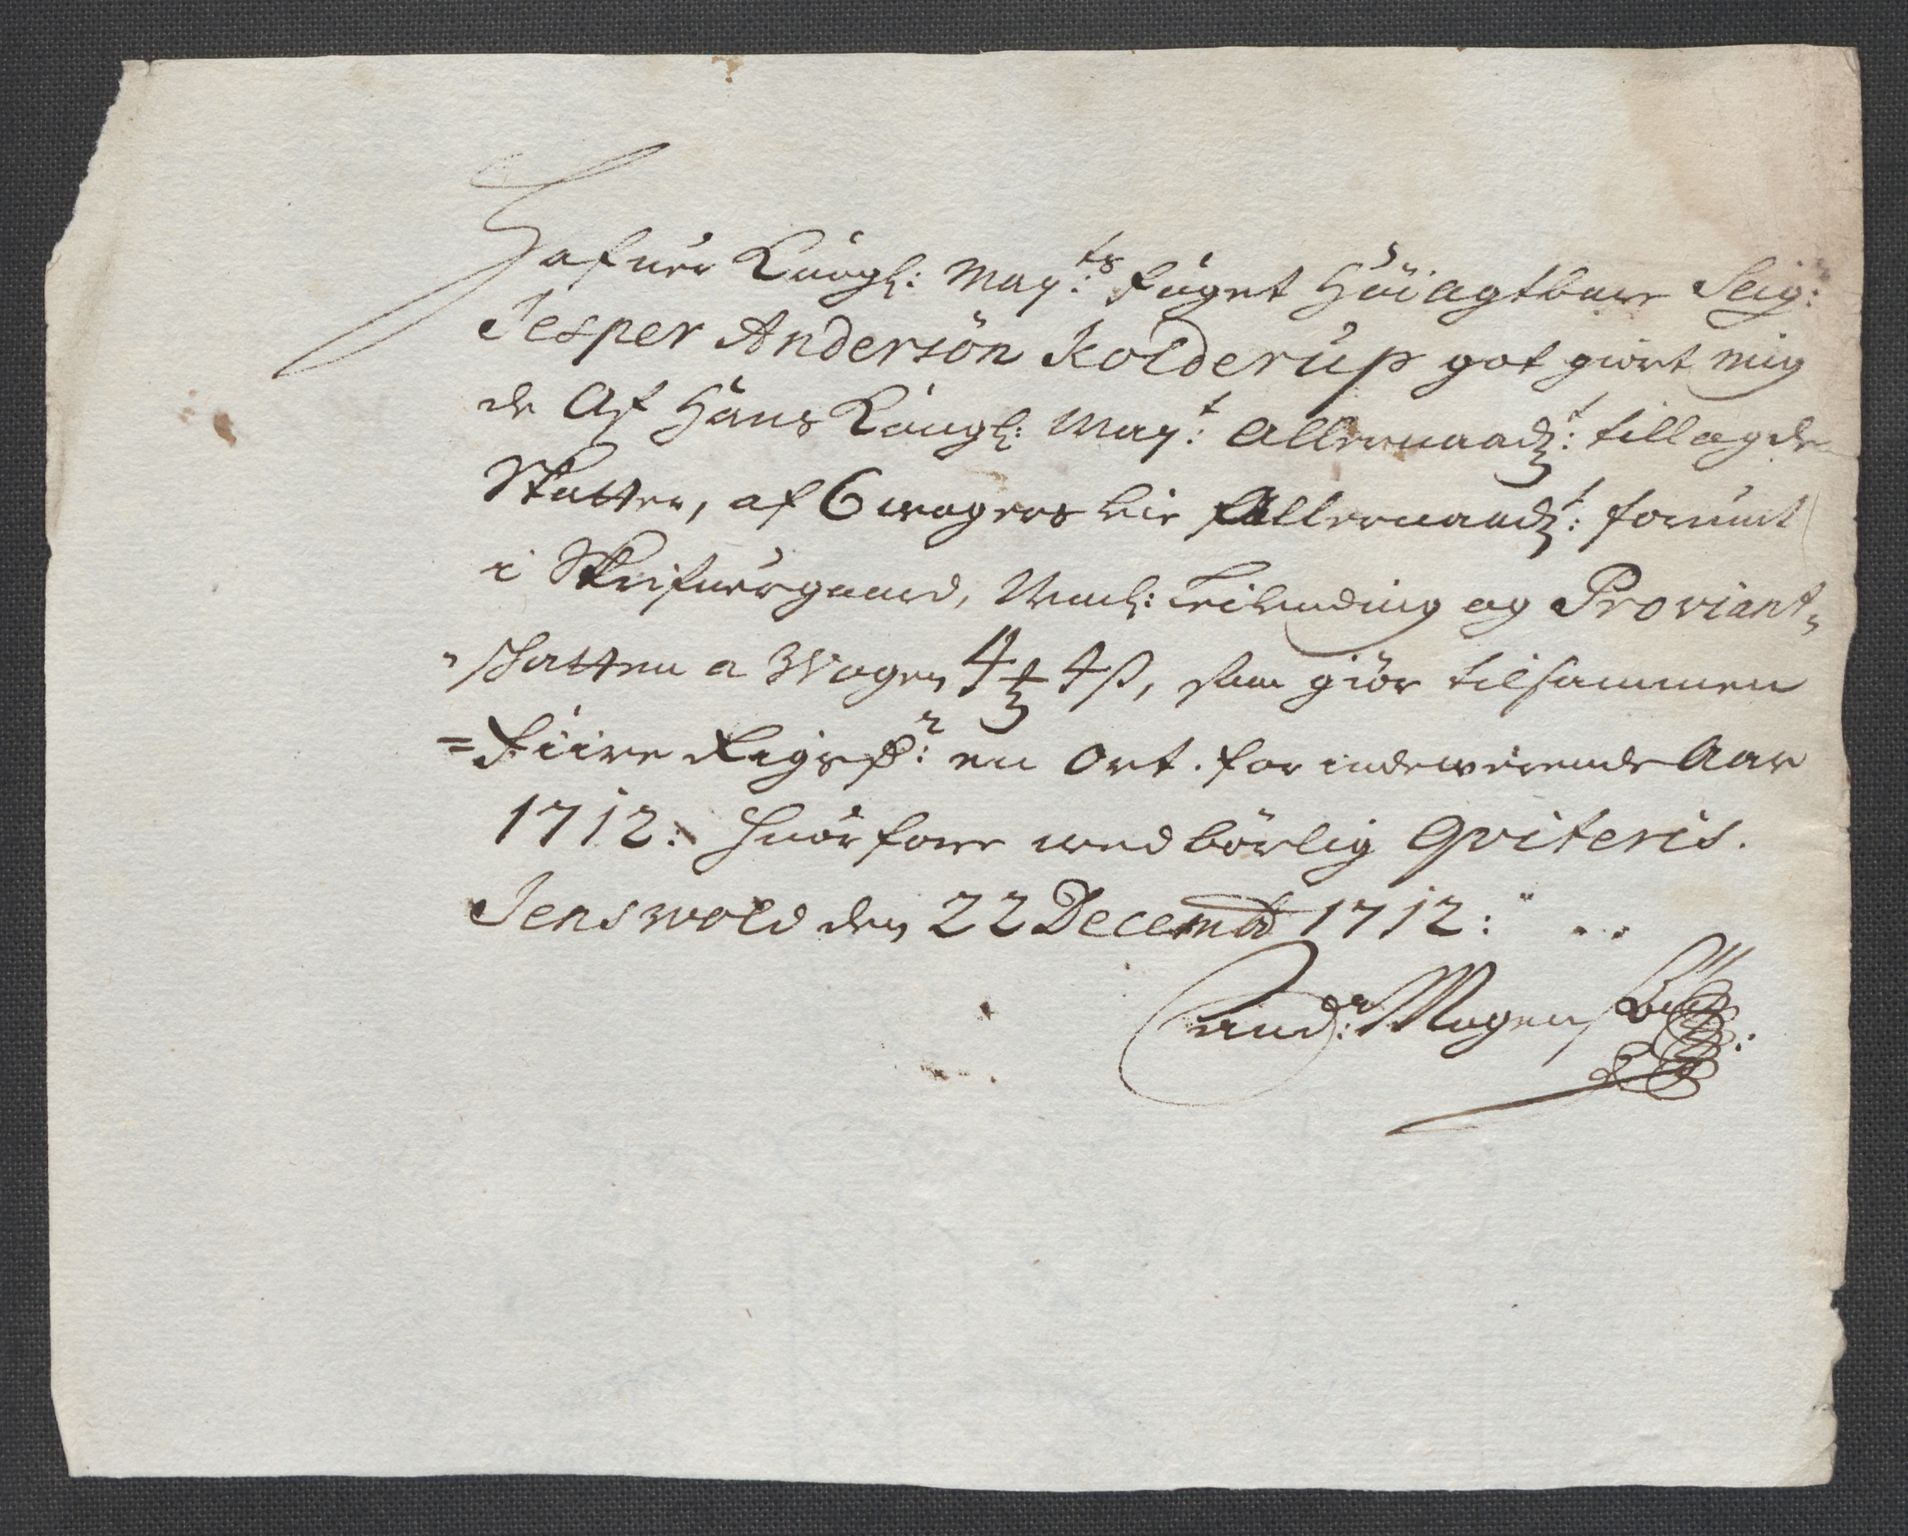 Hafuer Kongl: May:ts fůget Höiagtbare Seig:
Jesper Andersön Kolderup got giort mig
de Af Hans Kongl: May:t Allernaadz:t tillagde
Skatter, af 6 wogers leie Allernaadz:t forunt
i Skrifuergaard, Leilending og Proviant-
skatten a Wogen 4 ƶ 4 ß, som giör tilsammen
=fiire Rigs dr: en Ort. for indewerende Aar
1712: Huorfore wed börlig Qviteris.
Jenswold den 22 Decemb 1712:
And:r Mogens